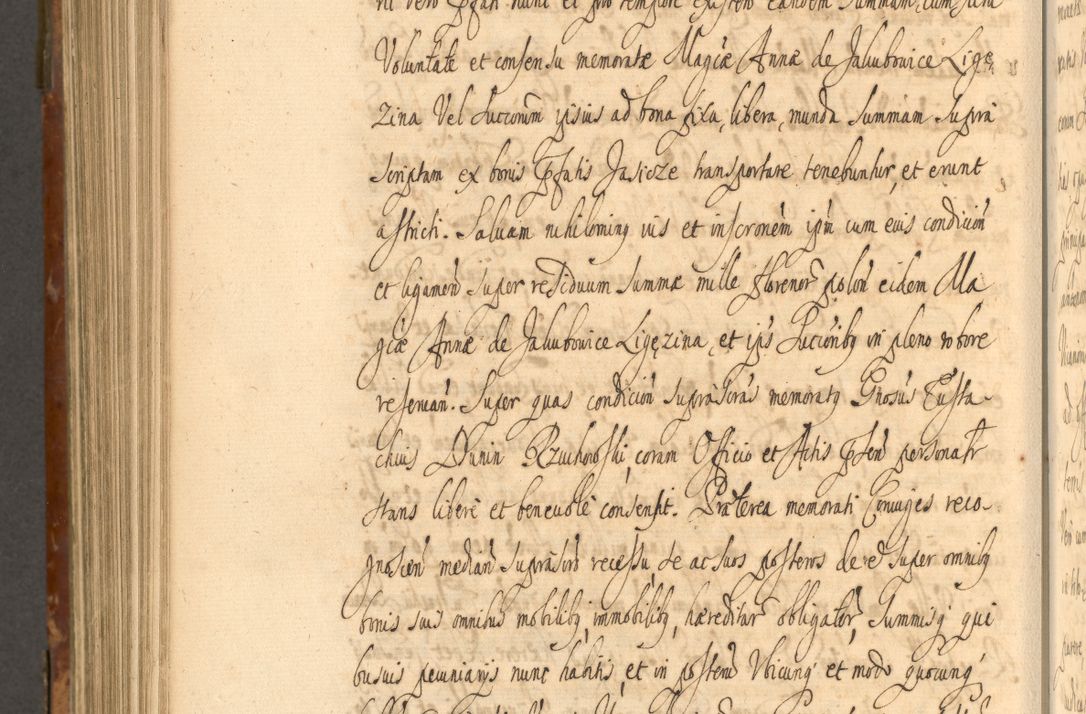 Voluntate et consensu memoratæ Magcæ Annæ de Jakubovice Ligę
zina Vel Succorum ipsius ad bona fixa, libera, munda Summam Supra
Scriptam ex bonis Pfatis Jasicze transportare tenebuntur, et erunt
astricti. Salvam nihilominq iuis et inscronem ipm cum eius condicion
et ligamen Super residuum Summæ mille florenor polon eidem Ma
gcæ Annæ de Jakubovice Ligęzina, et ips Succoribq in pleno robore
reservan. Super quas condicion suprascras memoratq Gnosus Eusta-
chius Dunin Rzuchowski, coram Officio et Actis Psen personatr
stans liberè et benevolè consensit. Præterea memorati Coniuges reco-
gnoscen median suprascro recessu, se ac suos posteros de et super omnibq
bonis suis omnibus mobilibq, immobilibq, hæreditar obligator, Summisq qui
busuis pecuniarijs nunc habitis, et in posterū Vbicunq et modo quocunq